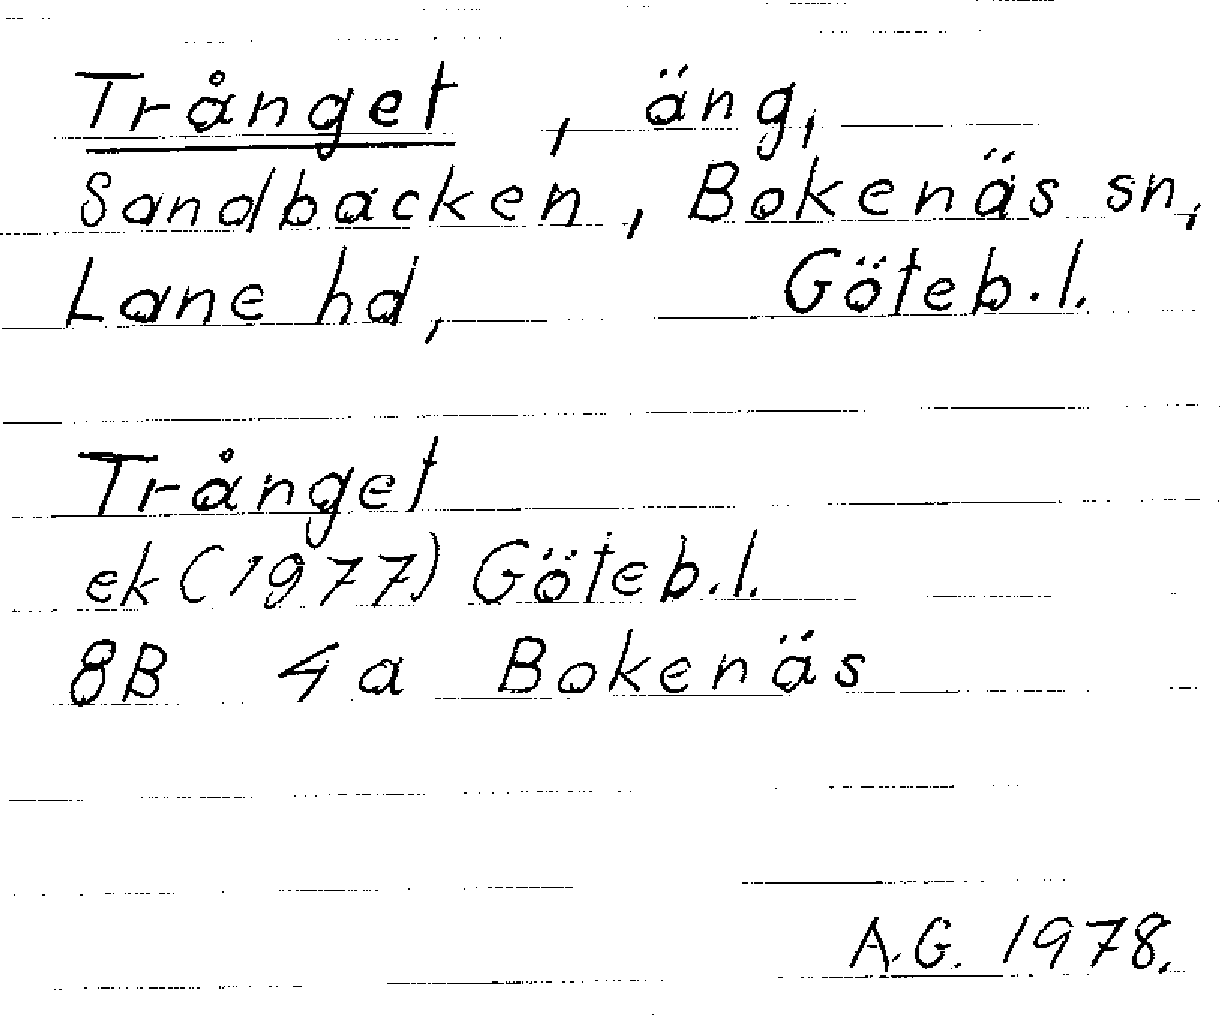 Trånget, äng,
Sandbacken, Bokenäs sn,
Lane hd, Göteb.l.
Trånget
ek (1977) Göteb.l.
8B 4a Bokenäs
A.G. 1978.